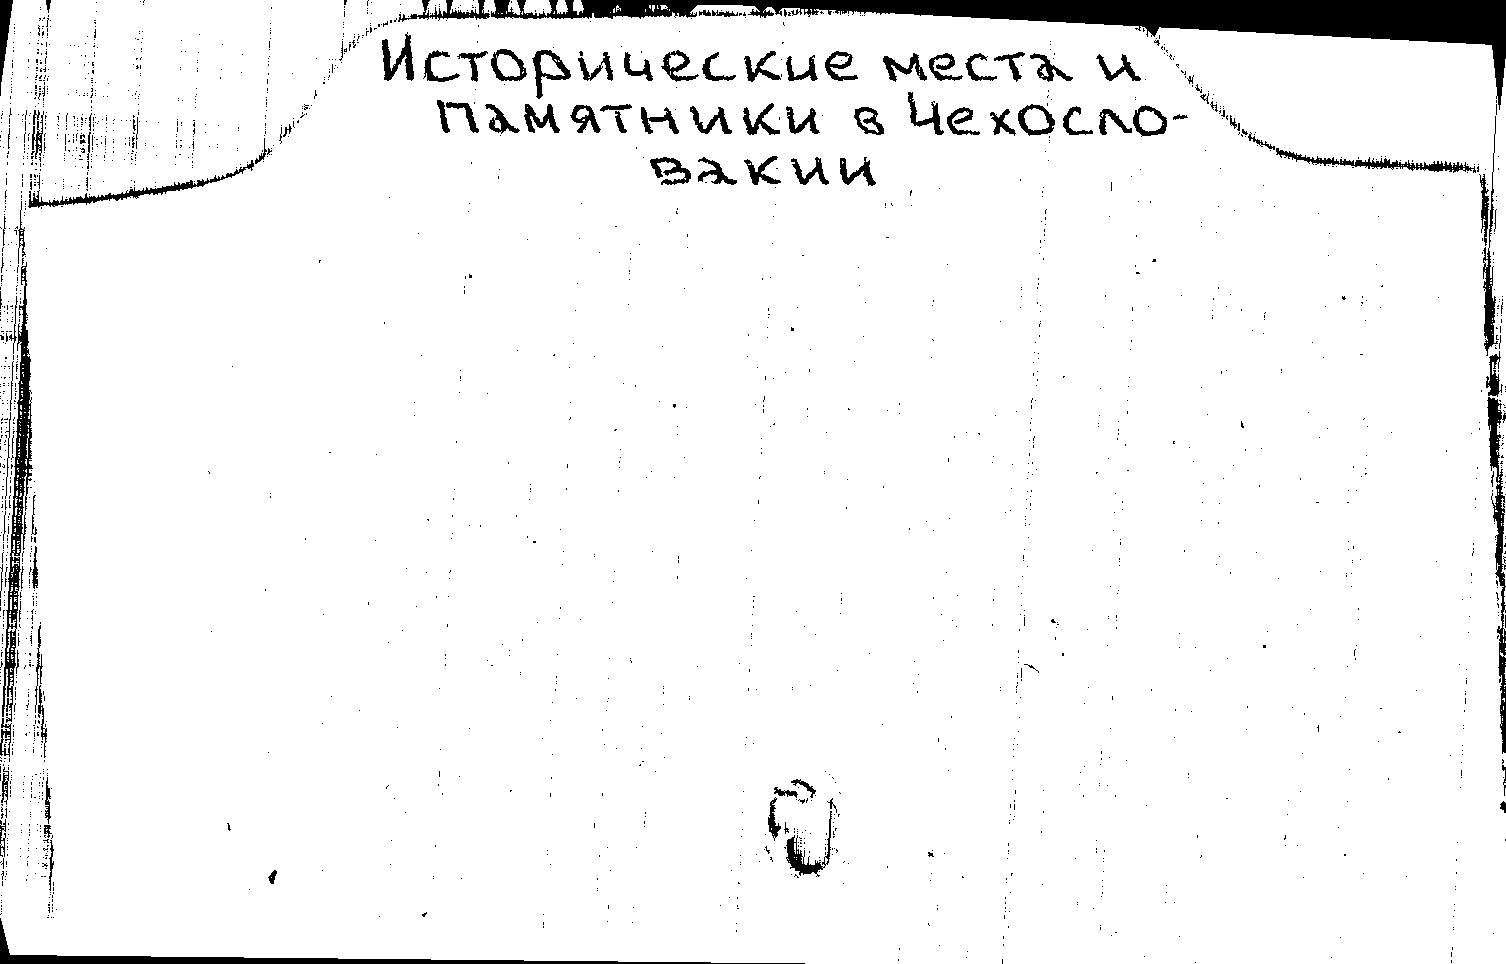 Исторические места и
памятники в Чехосло-
вакии